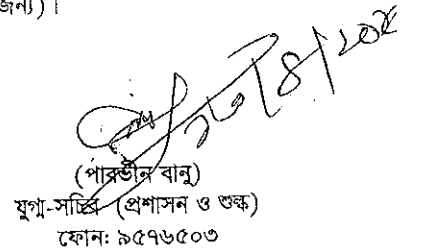 জন্য)।
(পারভীন বানু)
যুগ্ম-সচিব (প্রশাসন ও শুল্ক)
ফোন: ৯৫৭৬৫০৩